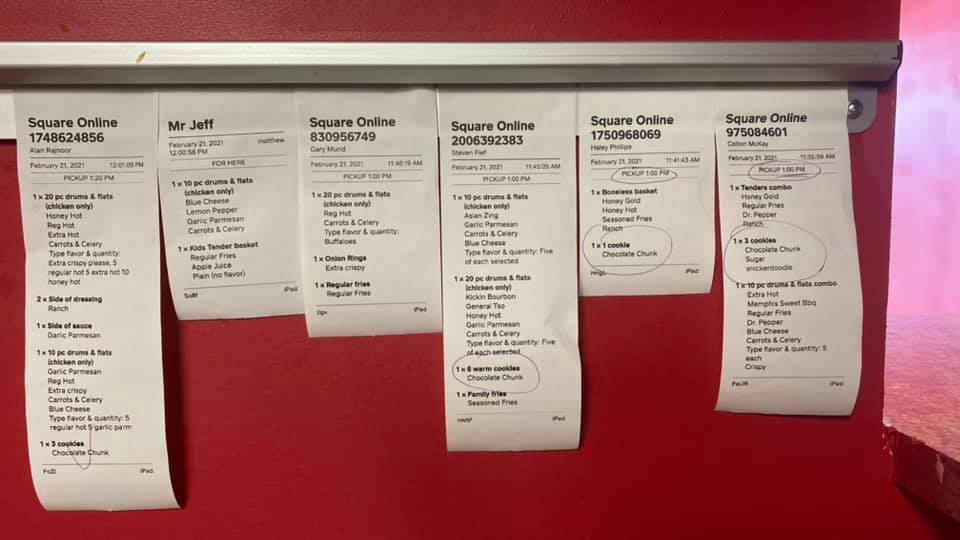 Square Online
1748624856
Alan Rajnoor
February 21, 2021 12:01:09 PM
PICKUP 1:20 PM
1 x 20 pc drums & flats
(chicken only)
Honey Hot
Reg Hot
Extra Hot
Carrots & Celery
Type flavor & quantity:
Extra crispy please, 5
regular hot 5 extra hot 10
honey hot
2 x Side of dressing
Ranch
1 x Side of sauce
Garlic Parmesan
1 x 10 pc drums & flats
(chicken only)
Garlic Parmesan
Reg Hot
Extra crispy
Carrots & Celery
Blue Cheese
Type flavor & quantity: 5
regular hot 5 garlic parm
1 x 3 cookies
Chocolate Chunk
FoZI iPad
Mr Jeff
February 21, 2021 matthew
12:00:58 PM
FOR HERE
1 x 10 pc drums & flats
(chicken only)
Blue Cheese
Lemon Pepper
Garlic Parmesan
Carrots & Celery
1 x Kids Tender basket
Regular Fries
Apple Juice
Plain (no flavor)
iPad
Square Online
830956749
Gary Mund
February 21, 2021 11:48:19 AM
PICKUP 1:00 PM
1 x 20 pc drums & flats
(chicken only)
Reg Hot
Carrots & Celery
Type flavor & quantity:
Buffaloes
1 x Onion Rings
Extra crispy
1 x Regular fries
Regular Fries
iPad
Square Online
2006392383
Steven Fief
February 21, 2021 11:45:05 AM
PICKUP 1:00 PM
1 x 10 pc drums & flats
(chicken only)
Asian Zing
Garlic Parmesan
Carrots & Celery
Blue Cheese
Type flavor & quantity: Five
of each selected
1 x 20 pc drums & flats
(chicken only)
Kickin Bourbon
General Tso
Honey Hot
Garlic Parmesan
Carrots & Celery
Type flavor & quantity: Five
of each selected
1 x 6 warm cookies
Chocolate Chunk
1 x Family fries
Seasoned Fries
iPad
Square Online
1750968069
Haley Phillips
February 21, 2021 11:41:43 AM
PICKUP 1:00 PM
1 x Boneless basket
Honey Gold
Honey Hot
Seasoned Fries
Ranch
1 x 1 cookie
Chocolate Chunk
iPad
Square Online
975084601
Colton McKay
February 21, 2021 11:35:59 AM
PICKUP 1:00 PM
1 x Tenders combo
Honey Gold
Regular Fries
Dr. Pepper
Ranch
1 x 3 cookies
Chocolate Chunk
Sugar
snickerdoodle
1 x 10 pc drums & flats combo
Extra Hot
Memphis Sweet Bbq
Regular Fries
Dr. Pepper
Blue Cheese
Carrots & Celery
Type flavor & quantity: 5
each
Crispy
iPad